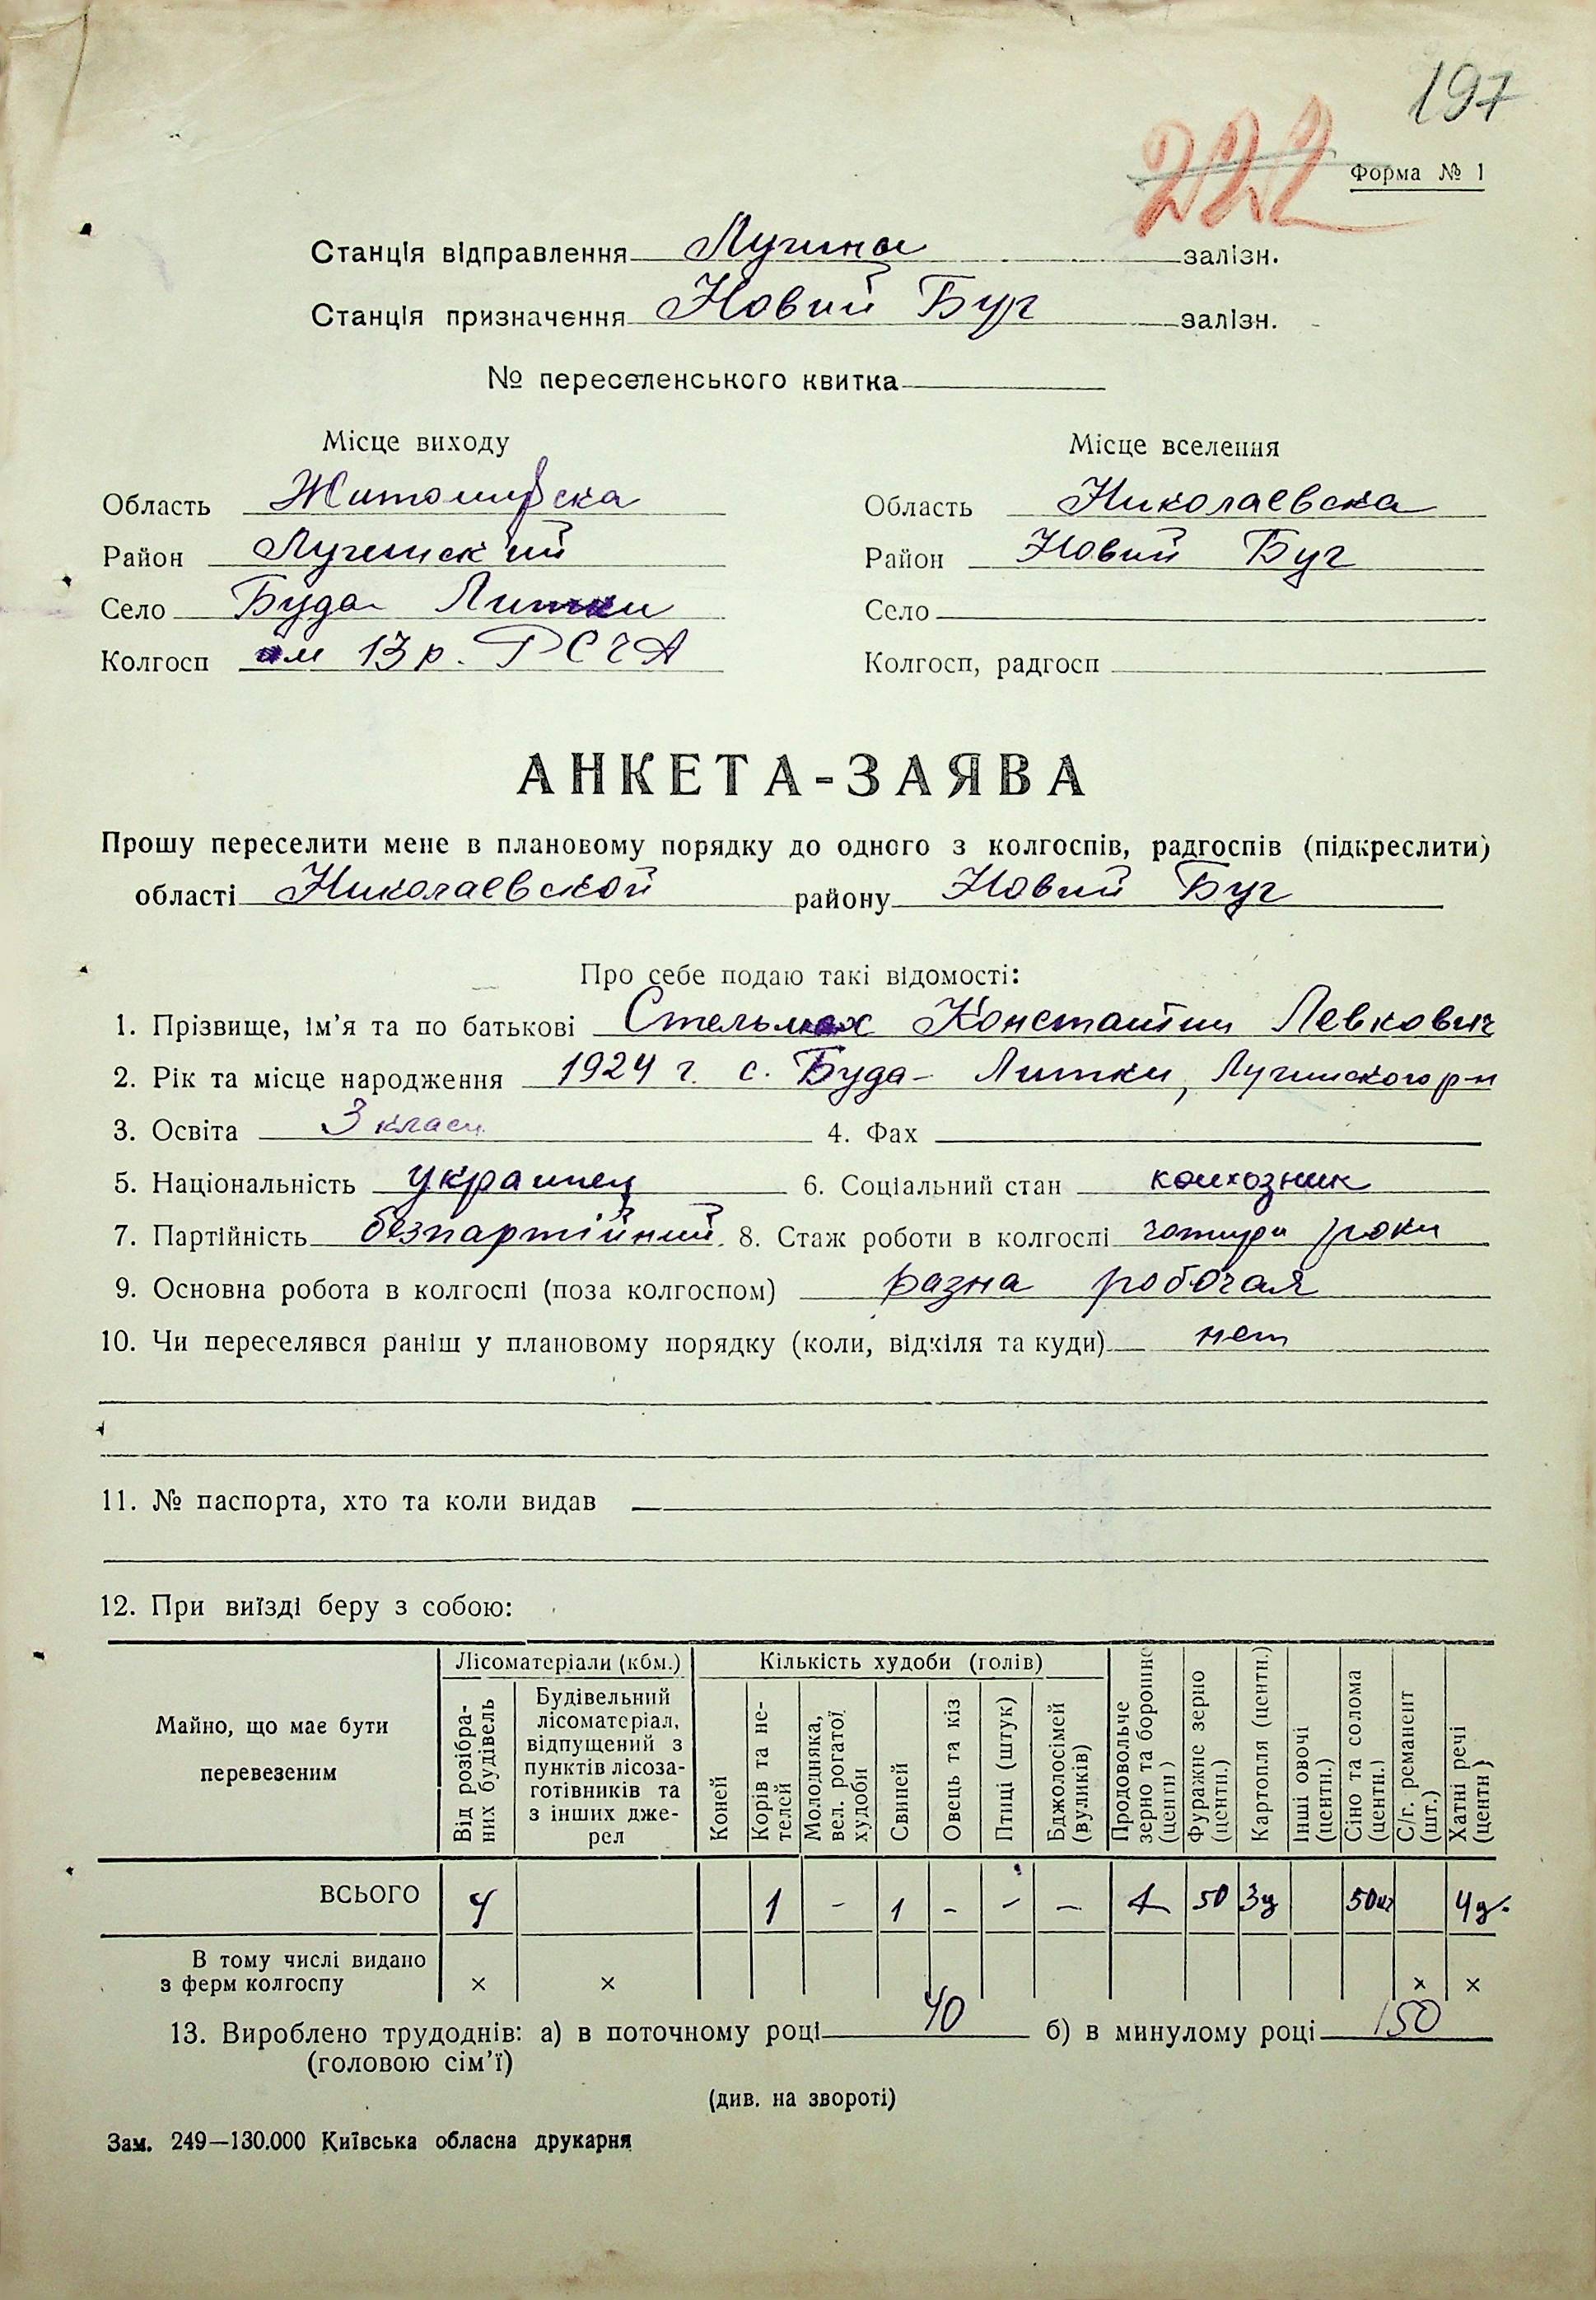 197
222
Форма № 1
Станція відправлення Лугини залізн.
Станція призначення Новий Буг залізн.
№ переселенського квитка
Місце виходу
Місце вселення
Область Житомирска
Область Николаевска
Район Лугинский
Район Новий Буг
Село Буда Литки
Село
Колгосп им 13 р. РСЧА
Колгосп, радгосп
АНКЕТА-ЗАЯВА
Прошу переселити мене в плановому порядку до одного з колгоспів, радгоспів (підкреслити)
області Николаевской району Новий Буг
Про себе подаю такі відомості:
1. Прізвище, ім'я та по батькові Стельмах Константин Левкович
2. Рік та місце народження 1924 г. с. Буда-Литки, Лугинского р-н
3. Освіта 3 класи 4. Фах
5. Національність украинец 6. Соціальний стан колхозник
7. Партійність безпартійний. 8. Стаж роботи в колгоспі чотири роки
9. Основна робота в колгоспі (поза колгоспом) разна робочая
10. Чи переселявся раніш у плановому порядку (коли, відкіля та куди) нет
11. № паспорта, хто та коли видав
12. При виїзді беру з собою:
Майно, що має бути перевезеним
Лісоматеріали (кбм.)
Кількість худоби (голів)
Від розібраних будівель
Будівельний лісоматеріал, відпущений з пунктів лісозаготівників та з інших джерел
Коней
Корів та нетелей
Молодняка, вел. рогатої худоби
Свиней
Овець та кіз
Птиці (штук)
Бджолосімей (вуликів)
Продовольче зерно та борошно (центн)
Фуражне зерно (центн.)
Картопля (центн.)
Інші овочі (центн.)
Сіно та солома (центн.)
С/г. реманент (шт.)
Хатні речі (центн)
ВСЬОГО 4 1 - 1 - - - 1 50 3ц 50кг 4ц.
В тому числі видано
з ферм колгоспу × × × ×
13. Вироблено трудоднів: а) в поточному році 40 б) в минулому році 150
(головою сім'ї)
(див. на звороті)
Зам. 249—130.000 Київська обласна друкарня